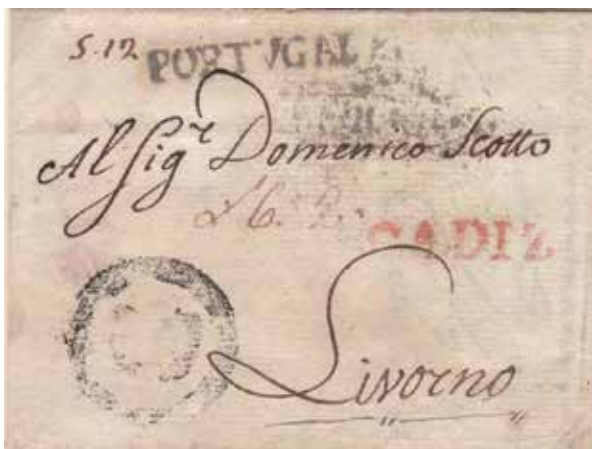 5.12
PORTVGAL
Al Sig.r Domenico Scotto
CADIZ
Livorno